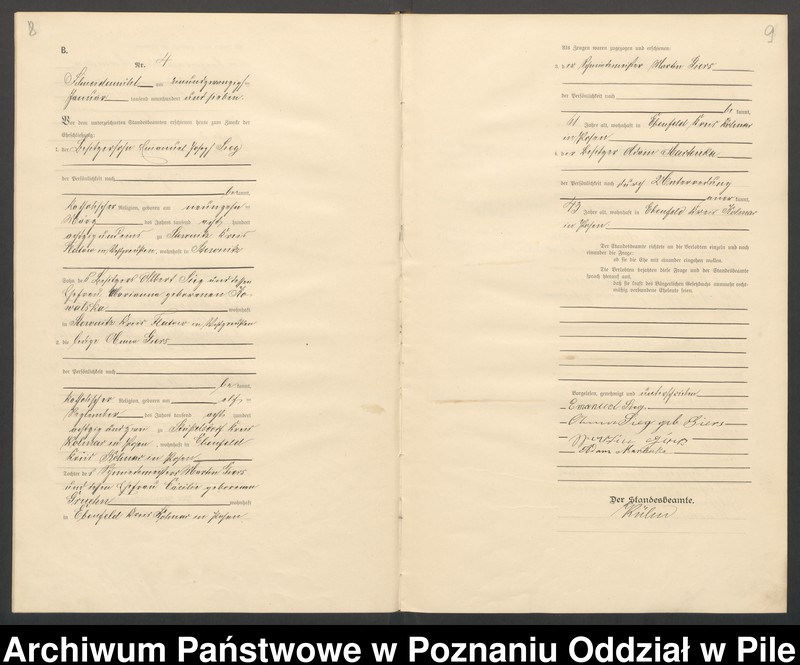 8
B.
Nr. 4
Schneidemühl am neunundzwanzigsten
Januar tausend neunhundert und sieben.
Vor dem unterzeichneten Standesbeamten erschienen heute zum Zwecke der
Eheschließung:
1. der Besitzersohn Emanuel Josef Sieg
der Persönlichkeit nach
be kannt,
katholischer Religion, geboren am neunzehnten
März des Jahres tausend acht hundert
achtzig und eins zu Kreis
Flatow in Westpreußen, wohnhaft in
Sohn des Besitzers Albert Sieg und dessen
Ehefrau Marianna geborenen
wohnhaft
in Kreis Flatow in Westpreußen
2. die ledige Anna Giers
der Persönlichkeit nach
be kannt,
katholischer Religion, geboren am elften
September des Jahres tausend acht hundert
achtzig und zu Kreis
Kolmar in Posen, wohnhaft in Ebenfeld
Kreis Kolmar in Posen
Tochter des Schmiedemeisters Martin Giers
und dessen Ehefrau Cäcilie geborenen
wohnhaft
in Ebenfeld Kreis Kolmar in Posen.
9
Als Zeugen waren zugezogen und erschienen:
3. der Schmiedemeister Martin Giers
der Persönlichkeit nach
be kannt,
Jahre alt, wohnhaft in Ebenfeld, Kreis Kolmar
in Posen
4. der Besitzer Adam
der Persönlichkeit nach durch Unterredung
aner kannt,
43 Jahre alt, wohnhaft in Ebenfeld Kreis Kolmar
in Posen
Der Standesbeamte richtete an die Verlobten einzeln und nach
einander die Frage:
ob sie die Ehe mit einander eingehen wollen.
Die Verlobten bejahten diese Frage und der Standesbeamte
sprach hierauf aus,
daß sie kraft des Bürgerlichen Gesetzbuchs nunmehr recht-
mäßig verbundene Eheleute seien.
Vorgelesen, genehmigt und unterschrieben
Emanuel Sieg.
Anna Sieg geb Giers
Martin Giers
Adam
Der Standesbeamte.
Archiwum Państwowe w Poznaniu Oddział w Pile